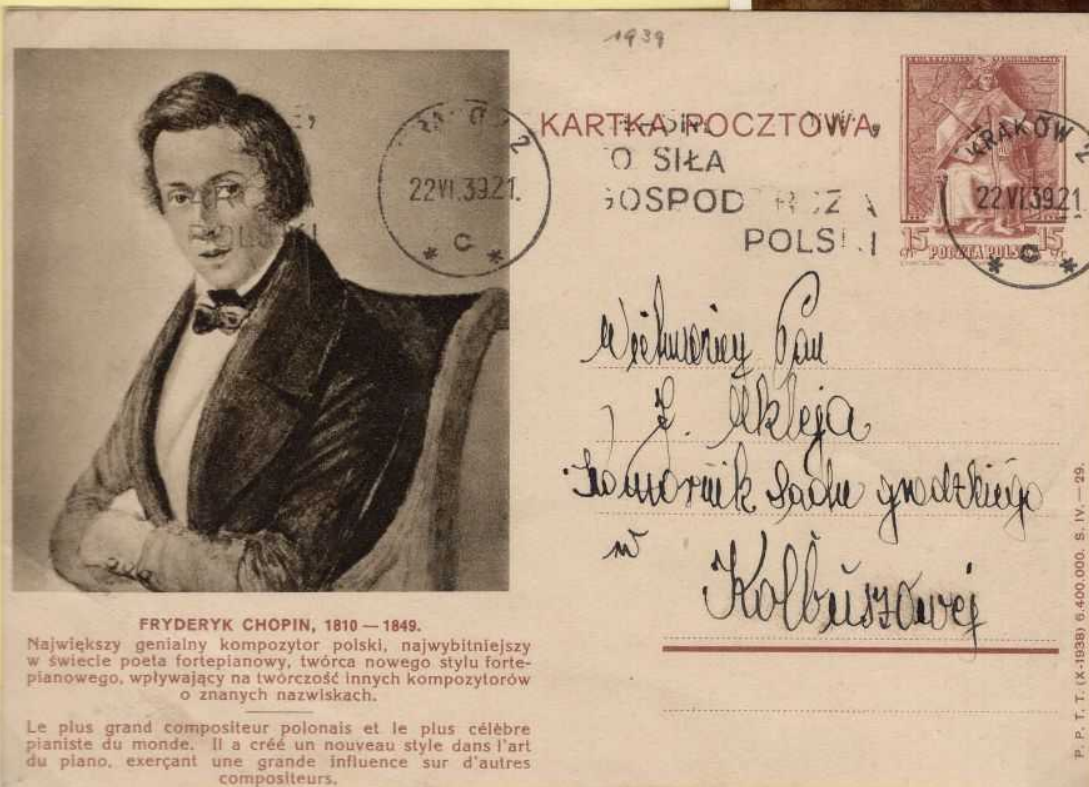 1939
KARTKA POCZTOWA
TO SIŁA
GOSPODARCZA
POLSKI
KRAKÓW 2
22 VI.39.21.
C
KRAKÓW 2
22 VI.39.21
C
15 15
POCZTA POLSKA
Wielmożny Pan
J. Ukleja
Komornik Sądu grodzkiego
w
Kolbuszowej
FRYDERYK CHOPIN, 1810 — 1849.
Największy genialny kompozytor polski, najwybitniejszy
w świecie poeta fortepianowy, twórca nowego stylu forte-
pianowego, wpływający na twórczość innych kompozytorów
o znanych nazwiskach.
Le plus grand compositeur polonais et le plus célèbre
pianiste du monde. Il a créé un nouveau style dans l'art
du piano, exerçant une grande influence sur d'autres
compositeurs.
P. P. T. T. (X-1938) 6.400.000. S. IV. — 29.